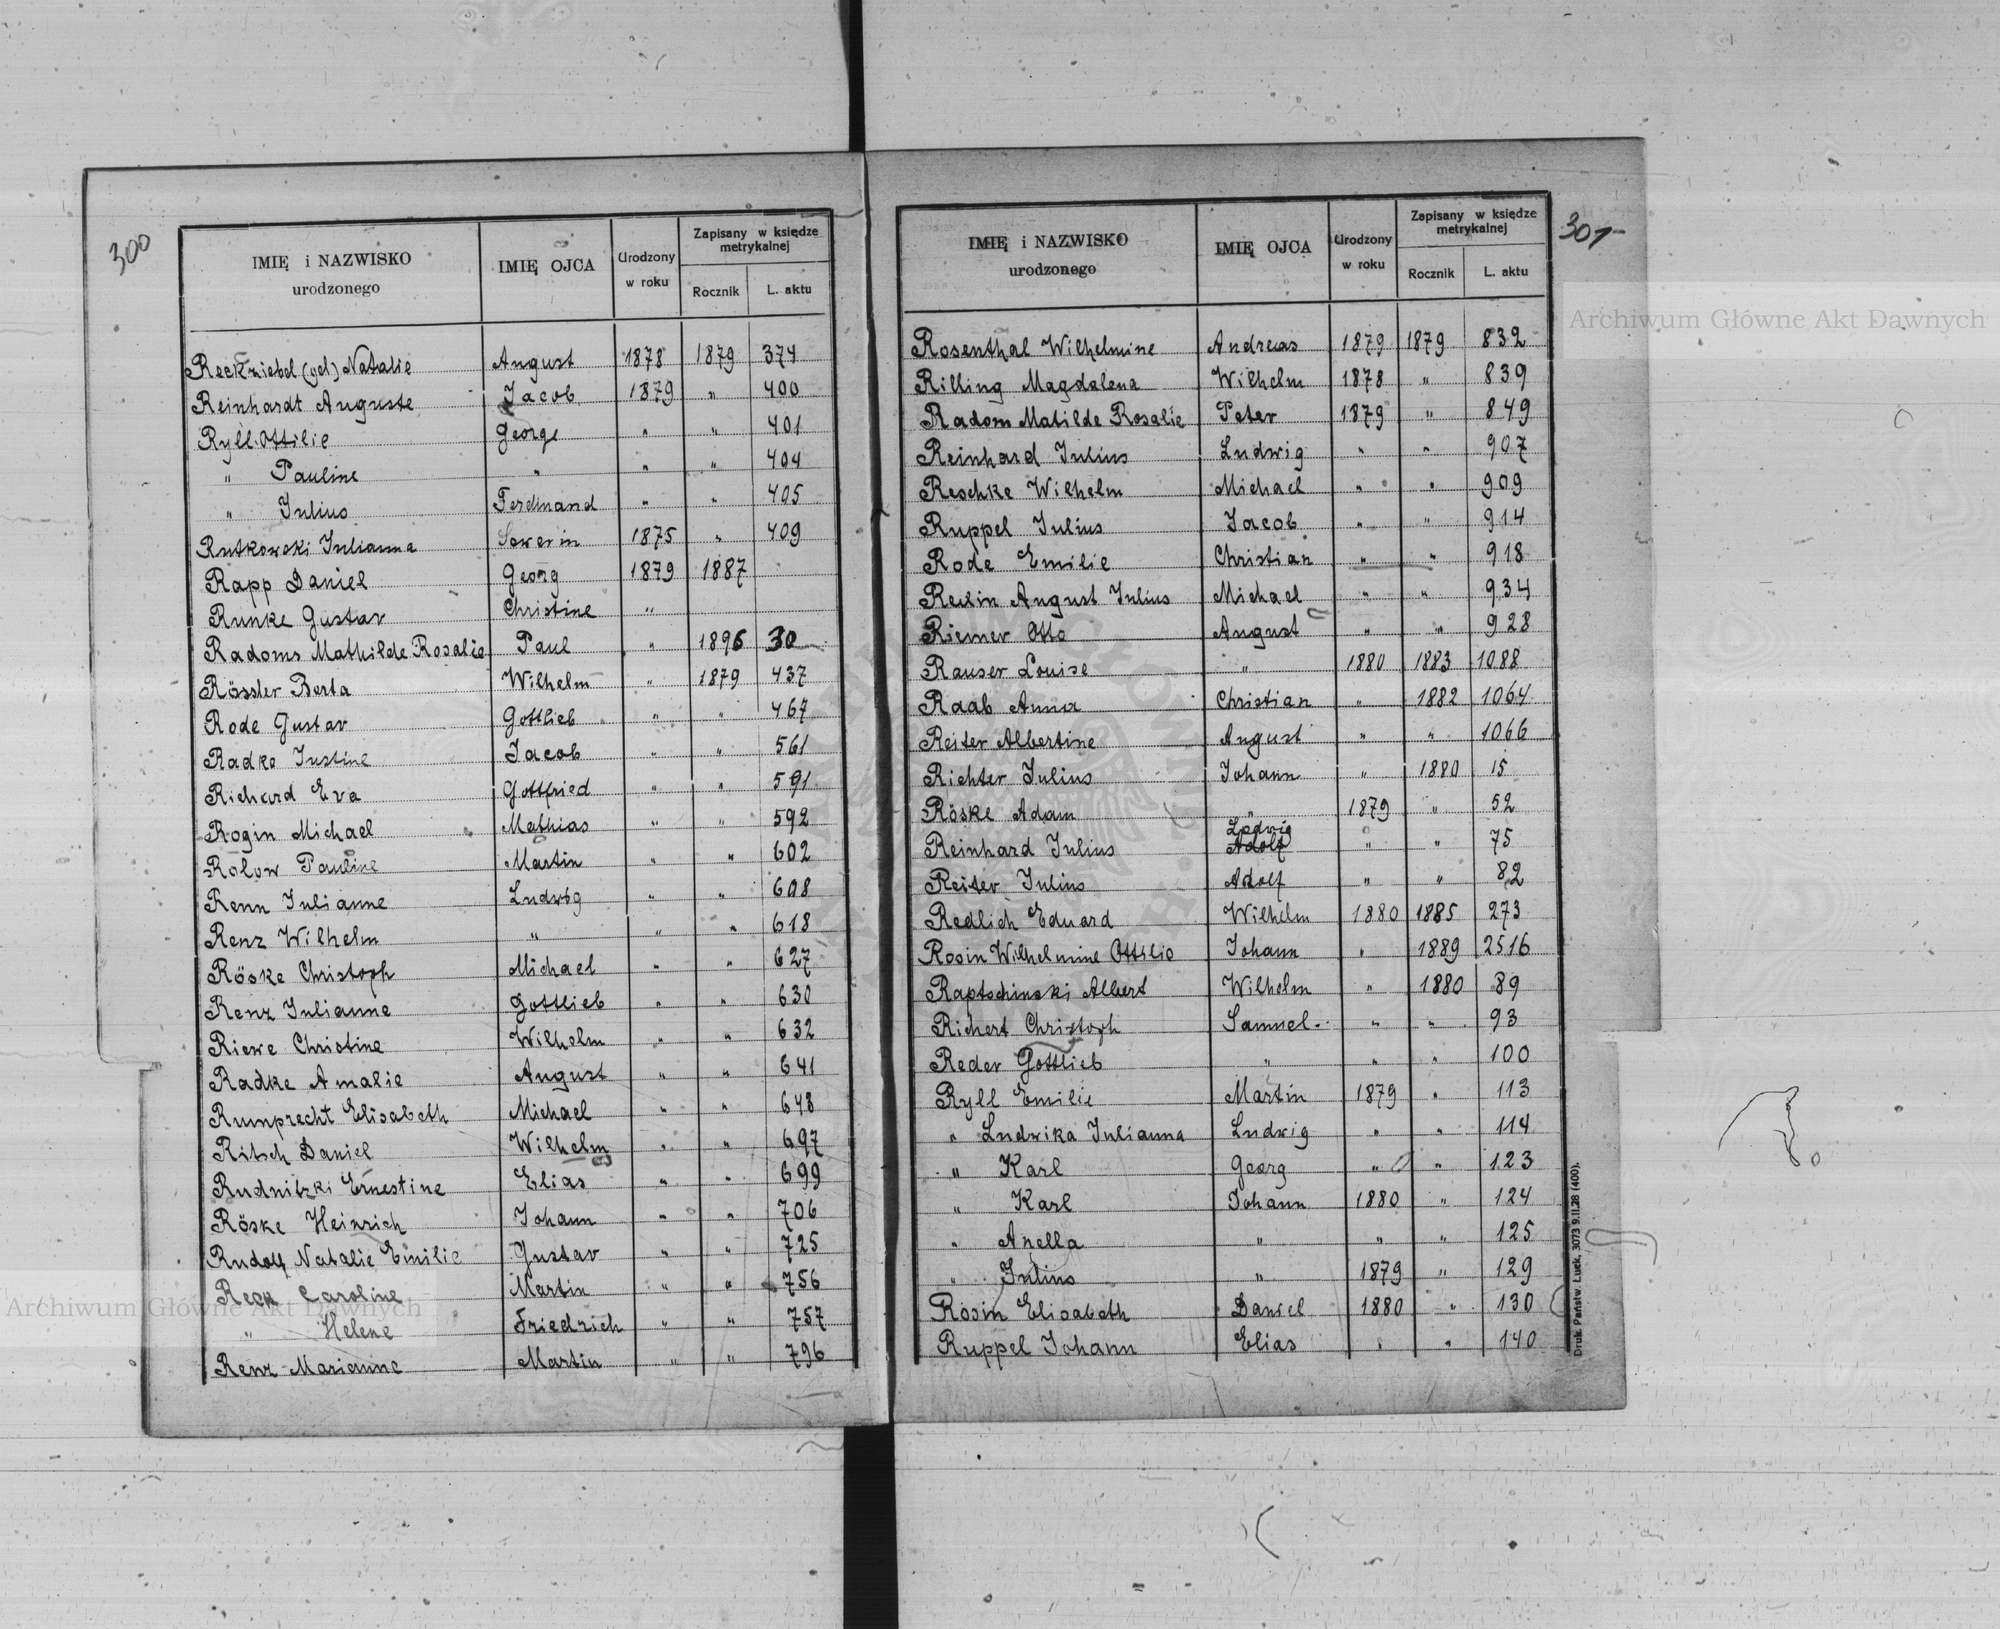 300
IMIĘ i NAZWISKO urodzonego IMIĘ OJCA Urodzony w roku Zapisany w księdze metrykalnej Rocznik L. aktu
Reckziebel (gel) Natalie August 1878 1879 374
Reinhardt Auguste Jacob 1879 " 400
Ryll Ottilie George " " 401
" Pauline " " " 404
" Julius Ferdinand " " 405
Rutkowski Julianna Sewerin 1875 " 409
Rapp Daniel Georg 1879 1887
Runke Gustav Christine "
Radoms Mathilde Rosalie Paul " 1896 30
Rössler Berta Wilhelm " 1879 437
Rode Gustav Gottlieb " " 467
Radke Justine Jacob " " 561
Richard Eva Gottfried " " 591
Rogin Michael Mathias " " 592
Rolow Pauline Martin " " 602
Renn Julianne Ludwig " " 608
Renz Wilhelm " " " 618
Röske Christoph Michael " " 627
Renz Julianne Gottlieb " " 630
Riewe Christine Wilhelm " " 632
Radke Amalie August " " 641
Rumprecht Elisabeth Michael " " 648
Ritsch Daniel Wilhelm " " 697
Rudnitzki Ernestine Elias " " 699
Röske Heinrich Johann " " 706
Rudolf Natalie Emilie Gustav " " 725
Reck Caroline Martin " " 756
" Helene Friedrich " " 757
Renz Marianne Martin " " 796
301
IMIĘ i NAZWISKO urodzonego IMIĘ OJCA Urodzony w roku Zapisany w księdze metrykalnej Rocznik L. aktu
Rosenthal Wilhelmine Andreas 1879 1879 832
Rilling Magdalena Wilhelm 1878 " 839
Radom Matilde Rosalie Peter 1879 " 849
Reinhard Julius Ludwig " " 907
Reschke Wilhelm Michael " " 909
Ruppel Julius Jacob " " 914
Rode Emilie Christian " " 918
Rewin August Julius Michael " " 934
Riemer Otto August " " 928
Rauser Louise " 1880 1883 1088
Raab Anna Christian " 1882 1064
Reiter Albertine August " " 1066
Richter Julius Johann " 1880 15
Röske Adam " 1879 " 52
Reinhard Julius Ludwig Adolf " " 75
Reiter Julius Adolf " " 82
Redlich Eduard Wilhelm 1880 1885 273
Rosin Wilhelmine Ottilie Johann " 1889 2516
Raptschinski Albert Wilhelm " 1880 89
Richert Christoph Samuel " " 93
Reder Gottlieb " " " 100
Ryll Emilie Martin 1879 " 113
" Ludwika Julianna Ludwig " " 114
" Karl Georg " " 123
" Karl Johann 1880 " 124
" Anella " " " 125
" Julius " 1879 " 129
Rosin Elisabeth Daniel 1880 " 130
Ruppel Johann Elias " " 140
Druk. Państw. Łuck, 3073 9.II.28 (400).
Archiwum Główne Akt Dawnych
Archiwum Główne Akt Dawnych